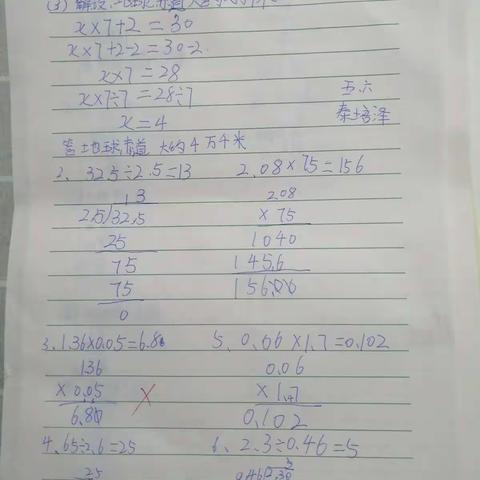 (3) 解设:地球赤道大约
x×7+2=30
x×7+2-2=30-2
x×7=28
x×7÷7=28÷7
x=4
五六
秦培泽
答:地球赤道大约4万千米
2、32.5÷2.5=13
2.08×75=156
13
2.5/32.5
25
75
75
0
2.08
×75
1040
1456
156.00
3、1.36×0.05=6.8
136
×0.05
6.80
5、0.06×1.7=0.102
0.06
×1.7
0.102
4、65÷2.6=25
25
6、2.3÷0.46=5
5
0.46/2.30